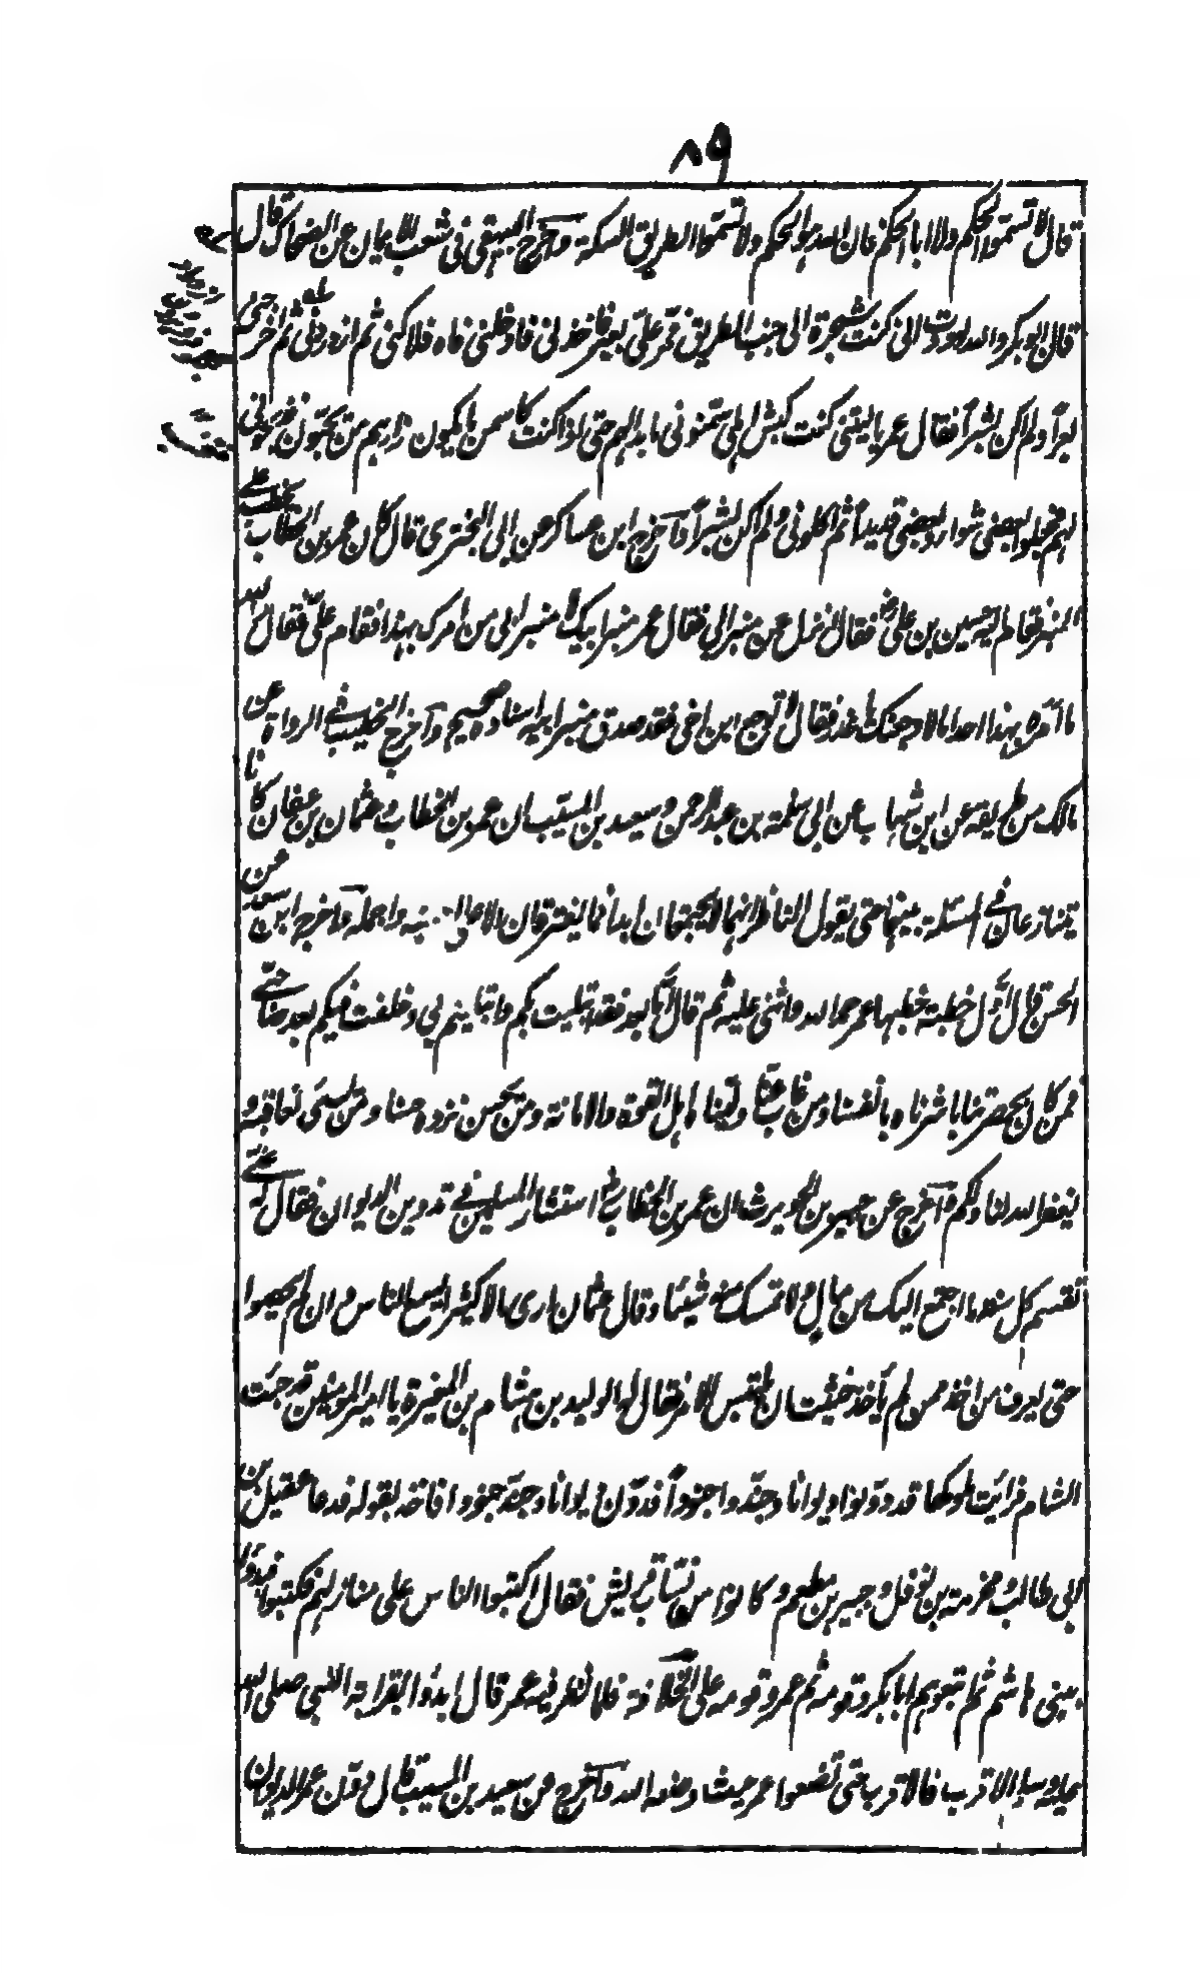 ٨٩
قال لا تسموا الحكم ولا ابا الحكم فان الله هو الحكم ولا تسموا الطريق السكة وآخرج البيهقي في شعب الايمان عن الضحاك قال
قال ابو بكر والله لوددت اني كنت شجرة الى جنب الطريق فمر علي بعير فاخذني فادخلني فاه فلاكني ثم ازدردني ثم اخرجني
بعرا ولم اكن بشرا فقال عمر يا ليتني كنت كبش اهلي سمنوني ما بدا لهم حتى اذا كنت كاسمن ما يكون زارهم من يحبون فذبحوني
لهم فجعلوا بعضي شواء وبعضي قديدا ثم اكلوني ولم اكن بشرا وآخرج ابن عساكر عن ابي البختري قال كان عمر بن الخطاب يخطب على
المنبر فقام اليه حسين بن علي فقال انزل عن منبر ابي فقال عمر منبر ابيك لا منبر ابي من امرك بهذا فقام علي فقال والله
ما امره بهذا احد اما لاوجعنك يا غدر فقال لا توجع ابن اخي فقد صدق منبر ابيه اسناده صحيح وآخرج الخطيب في الرواة عن
مالك من طريقه عن ابن شهاب عن ابي سلمة بن عبد الرحمن وسعيد بن المسيب ان عمر بن الخطاب وعثمان بن عفان كانا
يتنازعان في المسئلة بينهما حتى يقول الناظر انهما لا يجتمعان ابدا فما يفترقان الا على احسنه واجمله وآخرج ابن سعد عن
الحسن قال اول خطبة خطبها عمر حمد الله واثنى عليه ثم قال اما بعد فقد ابتليت بكم وابتليتم بي وخلفت فيكم بعد صاحبي
فمن كان بحضرتنا باشرناه بانفسنا ومن غاب عنا ولينا اهل القوة والامانة ومن يحسن نزده حسنا ومن يسئ نعاقبه و
يغفر الله لنا ولكم وآخرج عن جبير بن الحويرث ان عمر بن الخطاب استشار المسلمين في تدوين الديوان فقال له علي
تقسم كل سنة ما اجتمع اليك من مال ولا تمسك منه شيئا وقال عثمان ارى مالا كثيرا يسع الناس وان لم يحصوا
حتى يعرف من اخذ ممن لم يأخذ خشيت ان يلتبس الامر فقال له الوليد بن هشام بن المغيرة يا امير المؤمنين قد جئت
الشام فرأيت ملوكها قد دونوا ديوانا وجندوا جنودا فدون ديوانا وجند جنودا فاخذ بقوله فدعا عقيل بن
ابي طالب ومخرمة بن نوفل وجبير بن مطعم وكانوا من نساب قريش فقال اكتبوا الناس على منازلهم فكتبوا فبدؤا
ببني هاشم ثم اتبعوهم ابا بكر وقومه ثم عمر وقومه على الخلافة فلما نظر فيه عمر قال ابدؤا بقرابة النبي صلى الله
عليه وسلم الاقرب فالاقرب حتى تضعوا عمر حيث وضعه الله وآخرج عن سعيد بن المسيب قال دون عمر الديوان